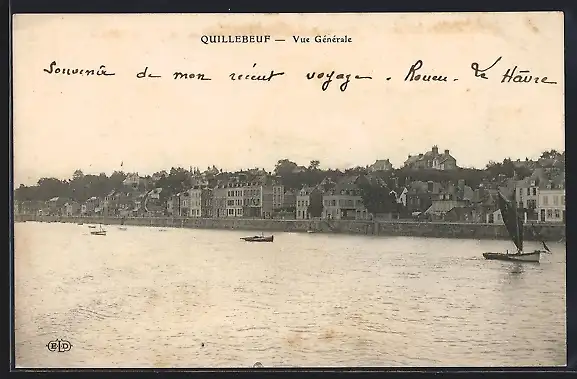 QUILLEBEUF — Vue Générale
Souvenir de mon récent voyage. Rouen. Le Hâvre
ELD